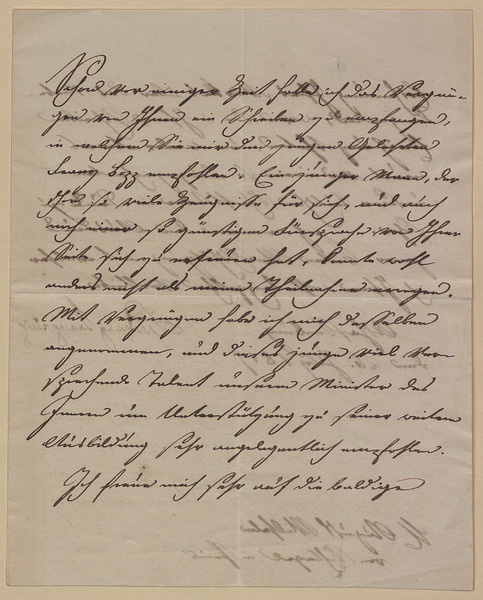 Schon vor einiger Zeit hatte ich das Vergnü-
gen von Ihnen ein Schreiben zu empfangen,
in welchem Sie mir den jungen Gelehrten
Franz Bopp empfohlen. Ein junger Mann, der
schon so viele Zeugnisse für sich, und auch
noch einer so günstigen Fürsprache von Ihrer
Seite sich zu erfreuen hat, konnte wohl
anders nicht als meine Theilnahme erregen.
Mit Vergnügen habe ich mich desselben
angenommen, und dieses junge viel ver-
sprechende Talent unserm Minister des
Innern um Unterstützung zu seiner weitern
Ausbildung sehr angelegentlich empfohlen.
Ich freue mich sehr auf die baldige